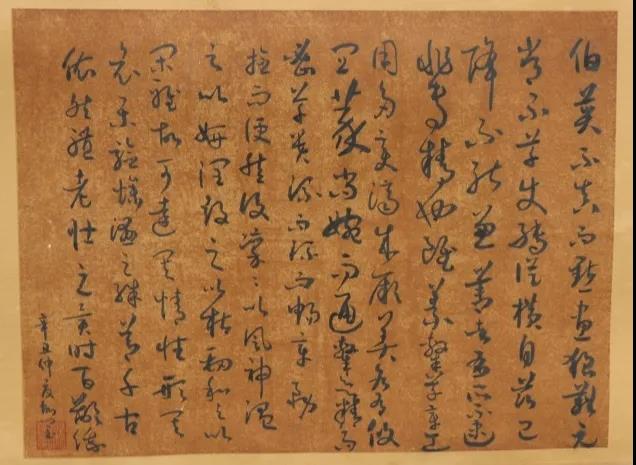 伯英不真而點畫狼藉元
常不草使轉縱橫自茲已
降不能兼善者有所不逮
非專精也雖篆隸草章工
用多變濟成厥美各有攸
宜篆尚婉而通隸欲精而
密草貴流而暢章務
檢而便然後凜之以風神溫
之以妍潤鼓之以枯勁和之以
閑雅故可達其情性形其
哀樂驗燥濕之殊節千古
依然體老壯之異時百齡俄
辛丑仲夏